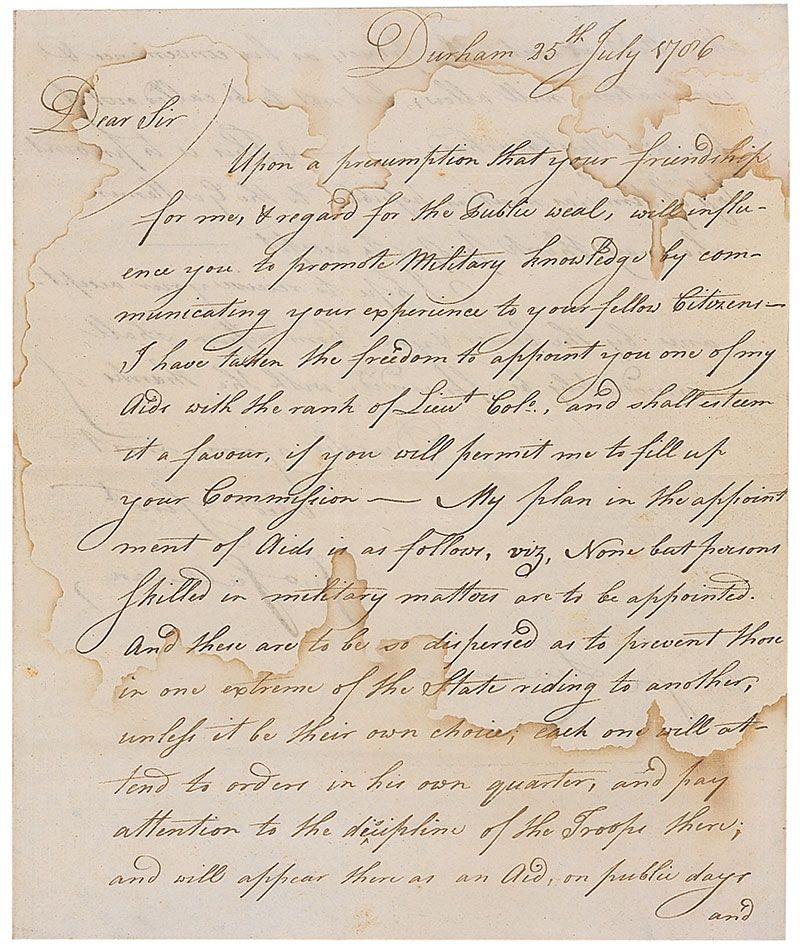 Durham 25th July 1786
Dear Sir
Upon a presumption that your friendship
for me, & regard for the Public weal, will influ-
ence you to promote Military knowledge by com-
municating your experience to your fellow Citizens—
I have taken the freedom to appoint you one of my
Aids with the rank of Lieut Colo., and shall esteem
it a favour, if you will permit me to fill up
your Commission — My plan in the appoint
ment of Aids is as follows, viz, None but persons
skilled in military matters are to be appointed.
And these are to be so dispersed as to prevent those
in one extreme of the State riding to another,
unless it be their own choice; each one will at-
tend to orders in his own quarter, and pay
attention to the discipline of the Troops there;
and will appear there as an Aid, on public days
and